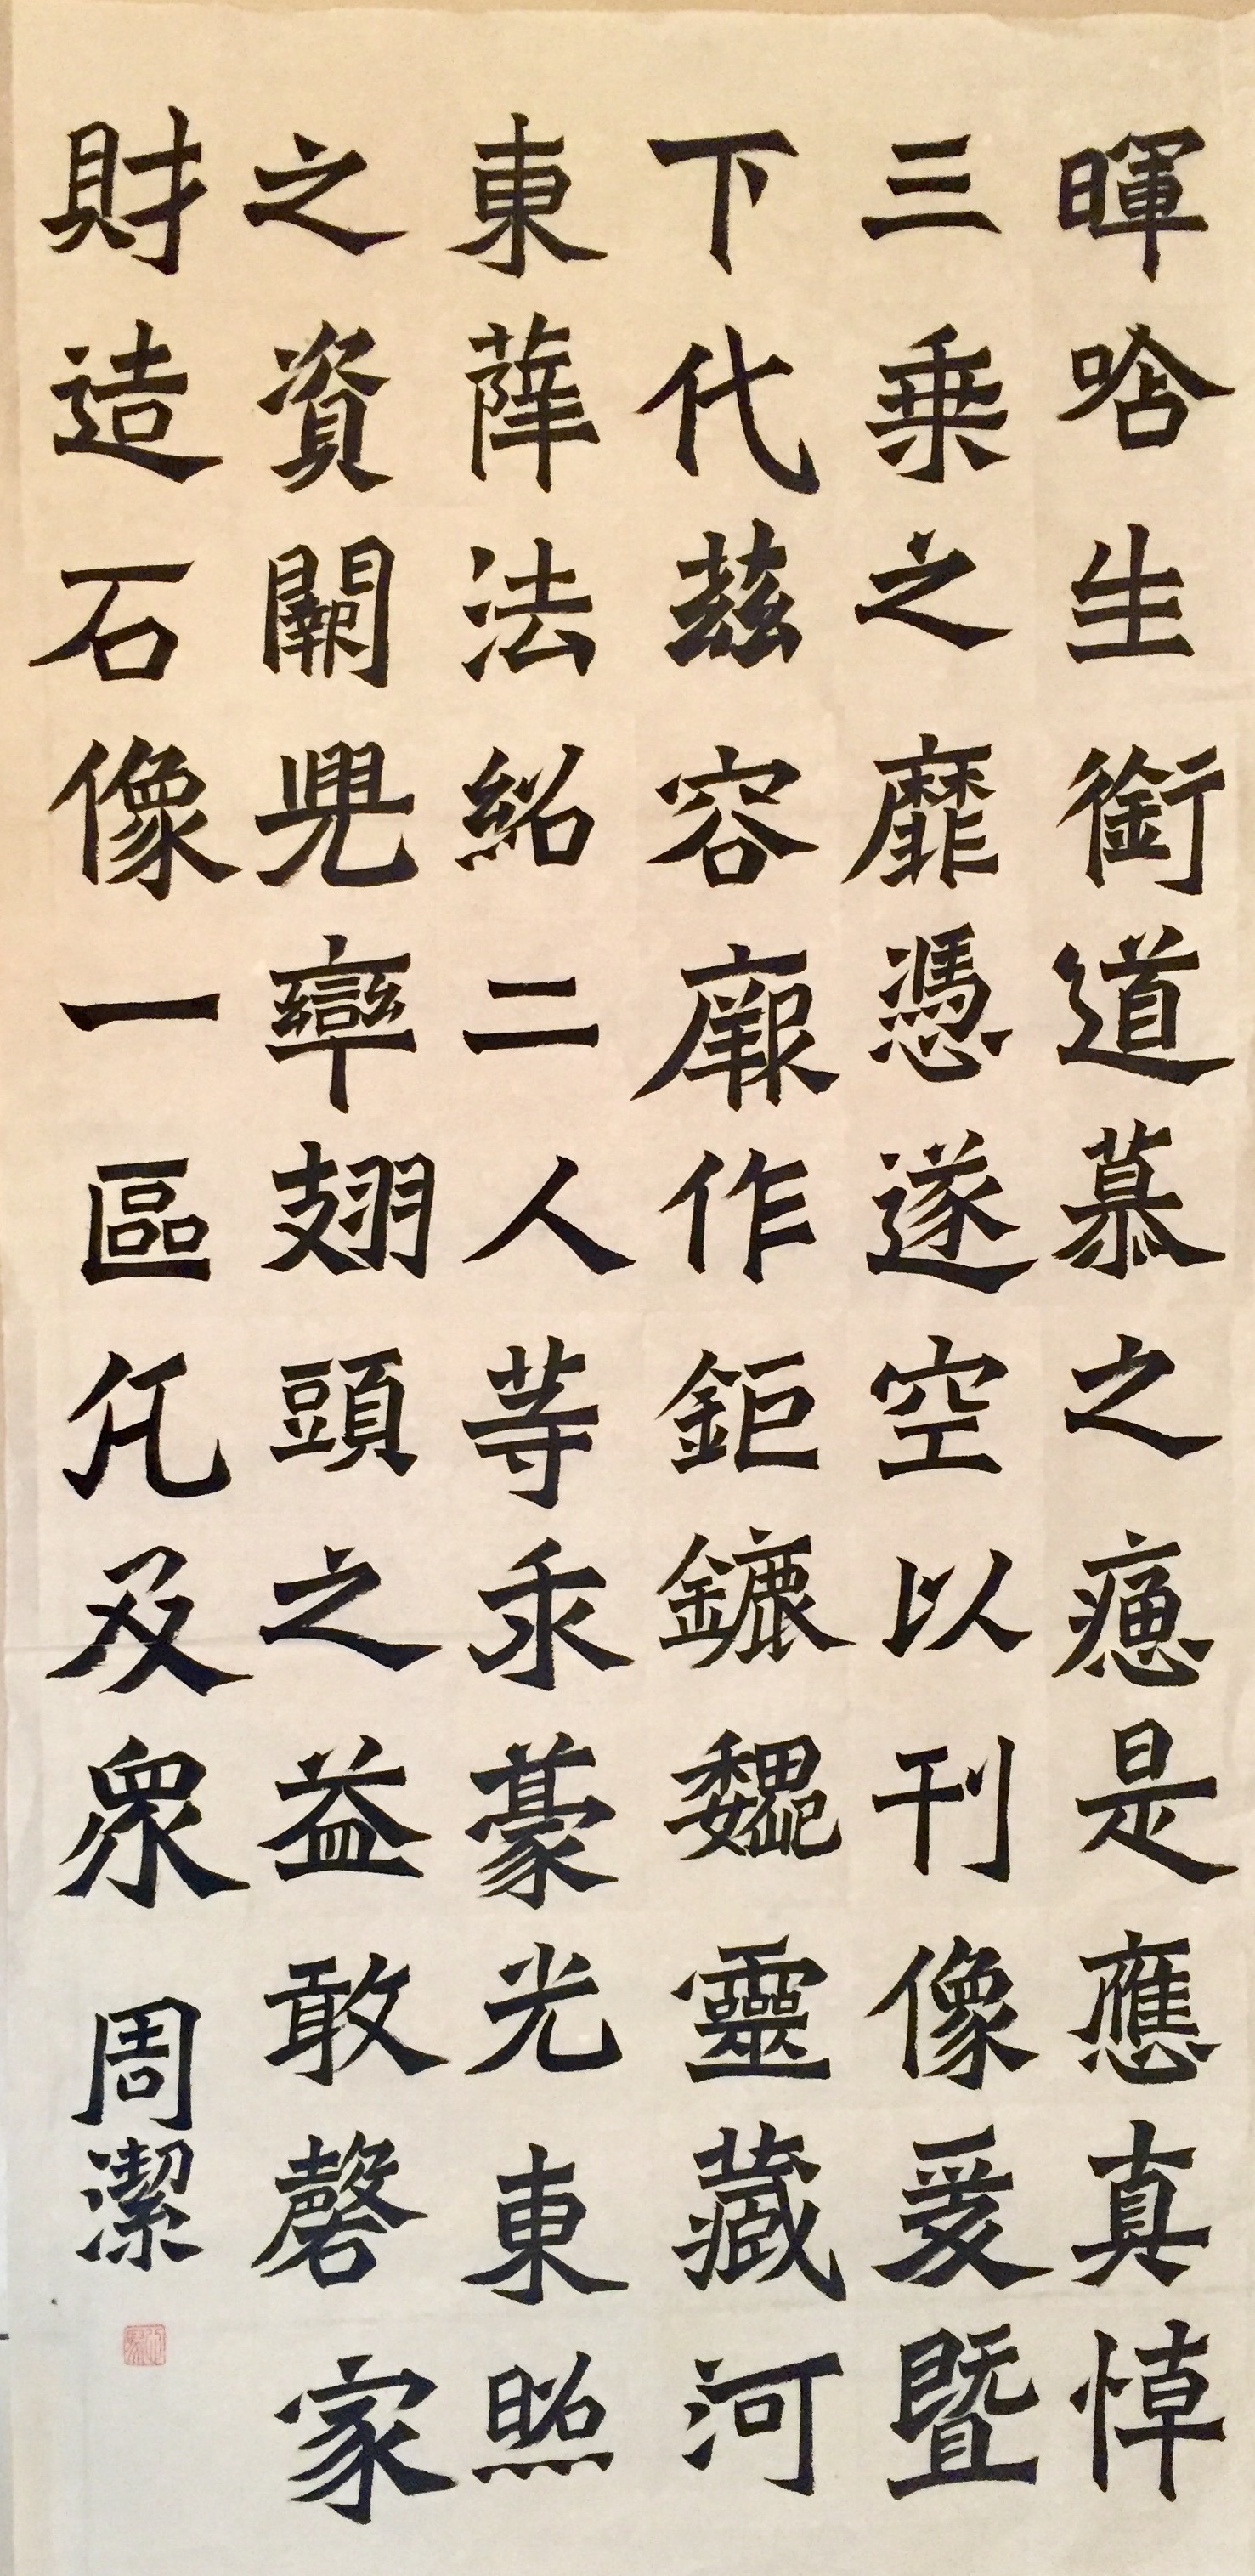 暉啥生銜道慕之癔是應真悼
三乗之靡憑遂空以刊像爰暨
下代茲容厥作鉅鏕魏靈藏河
東薛法紹二人等求豪光東照
之資闕兜率翅頭之益敢磬家
財造石像一區凡及眾
周潔